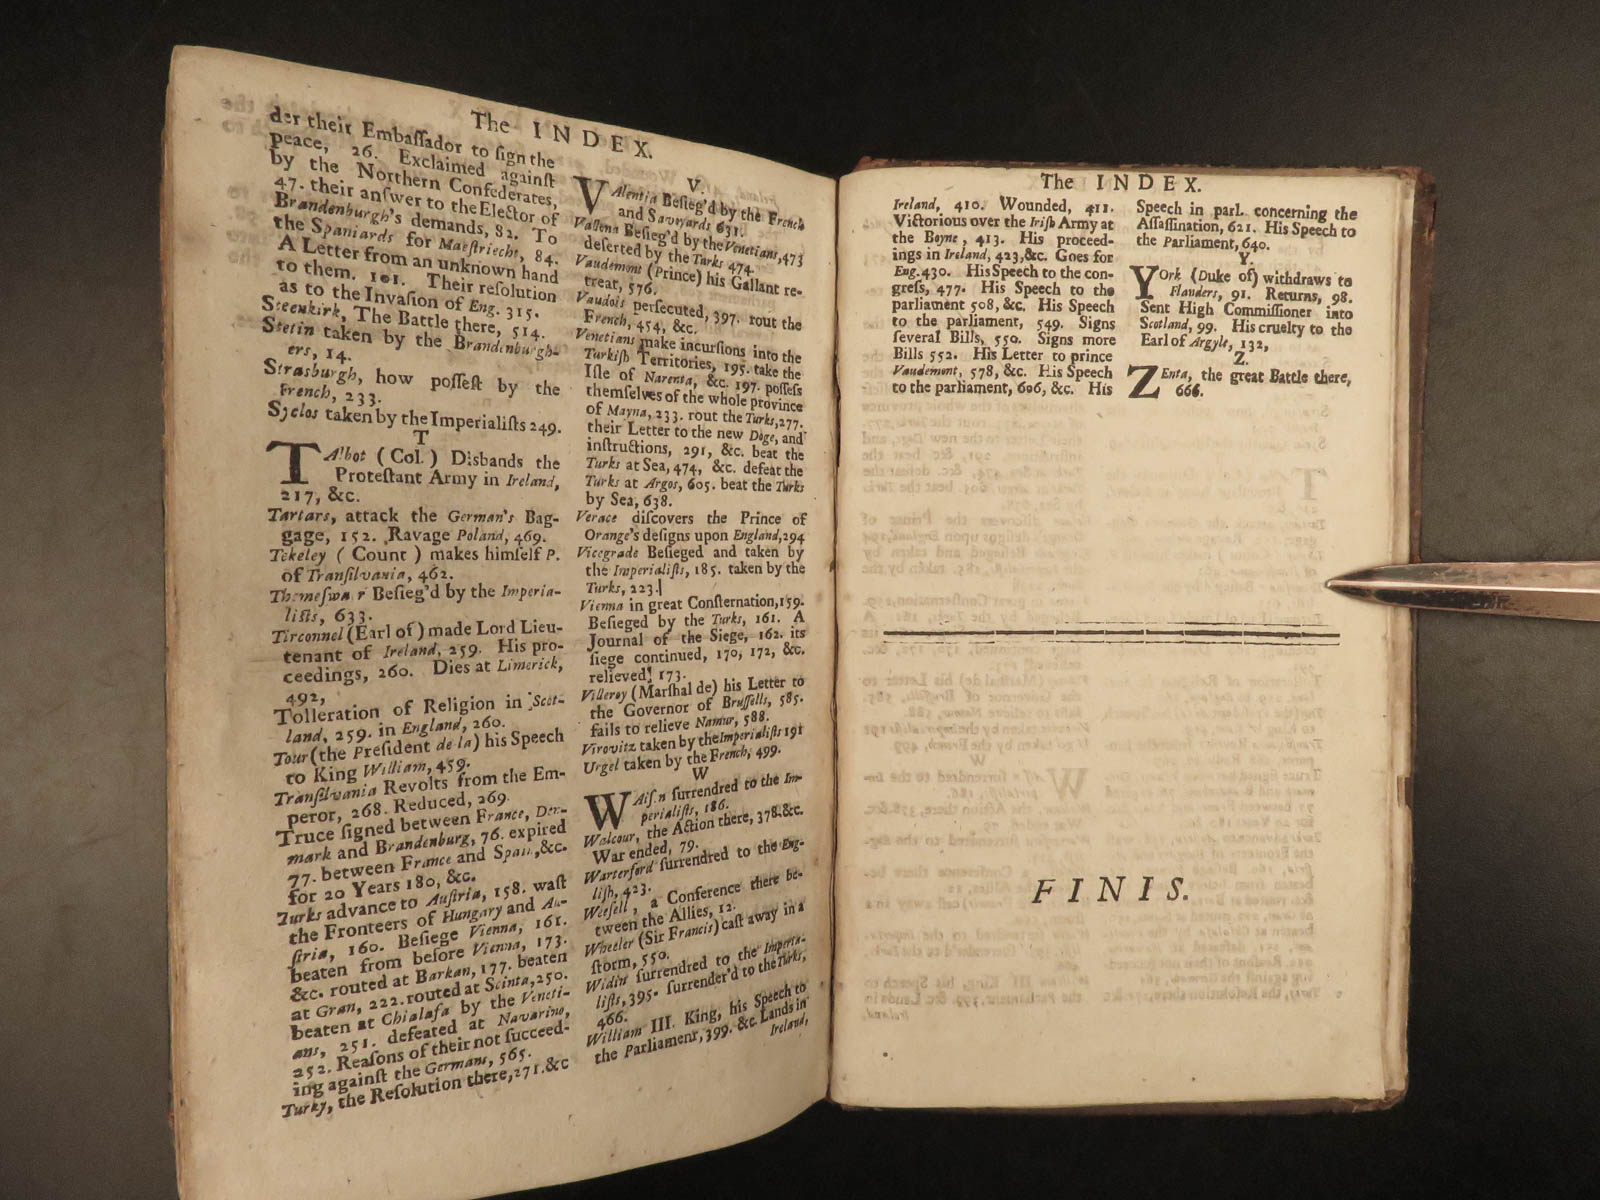 The INDEX.
der their Embaſſador to ſign the
peace, 26. Exclaimed againſt
by the Northern Confederates,
47. their anſwer to the Elector of
Brandenburgh's demands, 82. To
the Spaniards for Maeſtriecht, 84.
A Letter from an unknown hand
to them. 101. Their reſolution
as to the Invaſion of Eng. 315.
Steenkirk, The Battle there, 514.
Stetin taken by the Brandenburgh-
ers, 14.
Strasburgh, how poſſeſt by the
French, 233.
Syclos taken by the Imperialiſts 249.
T
TAlbot (Col.) Disbands the
Proteſtant Army in Ireland,
217, &c.
Tartars, attack the German's Bag-
gage, 152. Ravage Poland, 469.
Tekeley (Count) makes himſelf P.
of Tranſilvania, 462.
Themeſwar Beſieg'd by the Imperia-
liſts, 633.
Tirconnel (Earl of) made Lord Lieu-
tenant of Ireland, 259. His pro-
ceedings, 260. Dies at Limerick,
492,
Tolleration of Religion in Scot-
land, 259. in England, 260.
Tour (the Preſident de la) his Speech
to King William, 459.
Tranſilvania Revolts from the Em-
peror, 268. Reduced, 269.
Truce ſigned between France, Den-
mark and Brandenburg, 76. expired
77. between France and Spain,&c.
for 20 Years 180, &c.
Turks advance to Auſtria, 158. waſt
the Fronteers of Hungary and Au-
ſtria, 160. Beſiege Vienna, 161.
beaten from before Vienna, 173.
&c. routed at Barkan, 177. beaten
at Gran, 222. routed at Scinta, 250.
beaten at Chialafa by the Veneti-
ans, 251. defeated at Navarino,
252. Reaſons of their not ſucceed-
ing againſt the Germans, 565.
Turky, the Reſolution there, 271.&c
V.
VAlentia Beſieg'd by the French
and Savoyards 631.
Vallena Beſieg'd by the Venetians,473
deſerted by the Turks 474.
Vaudemont (Prince) his Gallant re-
treat, 576.
Vaudois perſecuted, 397. rout the
French, 454, &c.
Venetians make incurſions into the
Turkiſh Territories, 195. take the
Iſle of Narenta, &c. 197. poſſeſs
themſelves of the whole province
of Mayna, 233. rout the Turks,277.
their Letter to the new Doge, and
inſtructions, 291, &c. beat the
Turks at Sea, 474, &c. defeat the
Turks at Argos, 605. beat the Turks
by Sea, 638.
Verace diſcovers the Prince of
Orange's deſigns upon England,294
Vicegrade Beſieged and taken by
the Imperialiſts, 185. taken by the
Turks, 223.
Vienna in great Conſternation,159.
Beſieged by the Turks, 161. A
Journal of the Siege, 162. its
ſiege continued, 170, 172, &c.
relieved, 173.
Villeroy (Marſhal de) his Letter to
the Governor of Bruſſells, 585.
fails to relieve Namur, 588.
Virovitz taken by the Imperialiſts 191
Urgel taken by the French, 499.
W
WAiſen ſurrendred to the Im-
perialiſts, 186.
Walcour, the Action there, 378.&c.
War ended, 79.
Warterford ſurrendred to the Eng-
liſh, 423.
Weeſell, a Conference there be-
tween the Allies, 12.
Wheeler (Sir Francis) caſt away in a
ſtorm, 550.
Widin ſurrendred to the Imperia-
liſts, 395. ſurrender'd to the Turks,
466.
William III. King, his Speech to
the Parliament, 399. &c. Lands in
Ireland,
The INDEX.
Ireland, 410. Wounded, 411.
Victorious over the Iriſh Army at
the Boyne, 413. His proceed-
ings in Ireland, 423,&c. Goes for
Eng. 430. His Speech to the con-
greſs, 477. His Speech to the
parliament 508, &c. His Speech
to the parliament, 549. Signs
ſeveral Bills, 550. Signs more
Bills 552. His Letter to prince
Vaudemont, 578, &c. His Speech
to the parliament, 606, &c. His
Speech in parl. concerning the
Aſſaſſination, 621. His Speech to
the Parliament, 640.
Y.
YOrk (Duke of) withdraws to
Flanders, 91. Returns, 98.
Sent High Commiſſioner into
Scotland, 99. His cruelty to the
Earl of Argyle, 132,
Z.
ZEnta, the great Battle there,
666.
FINIS.